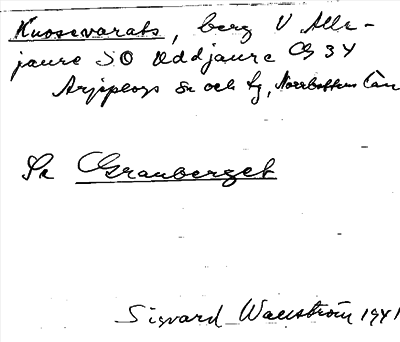 Kuosevarats, berg V Alle-
jaure SO Uddjaure Cg 34
Arjeplogs sn och tg, Norrbottens län
Se Granberget
Sigvard Wallström 1941